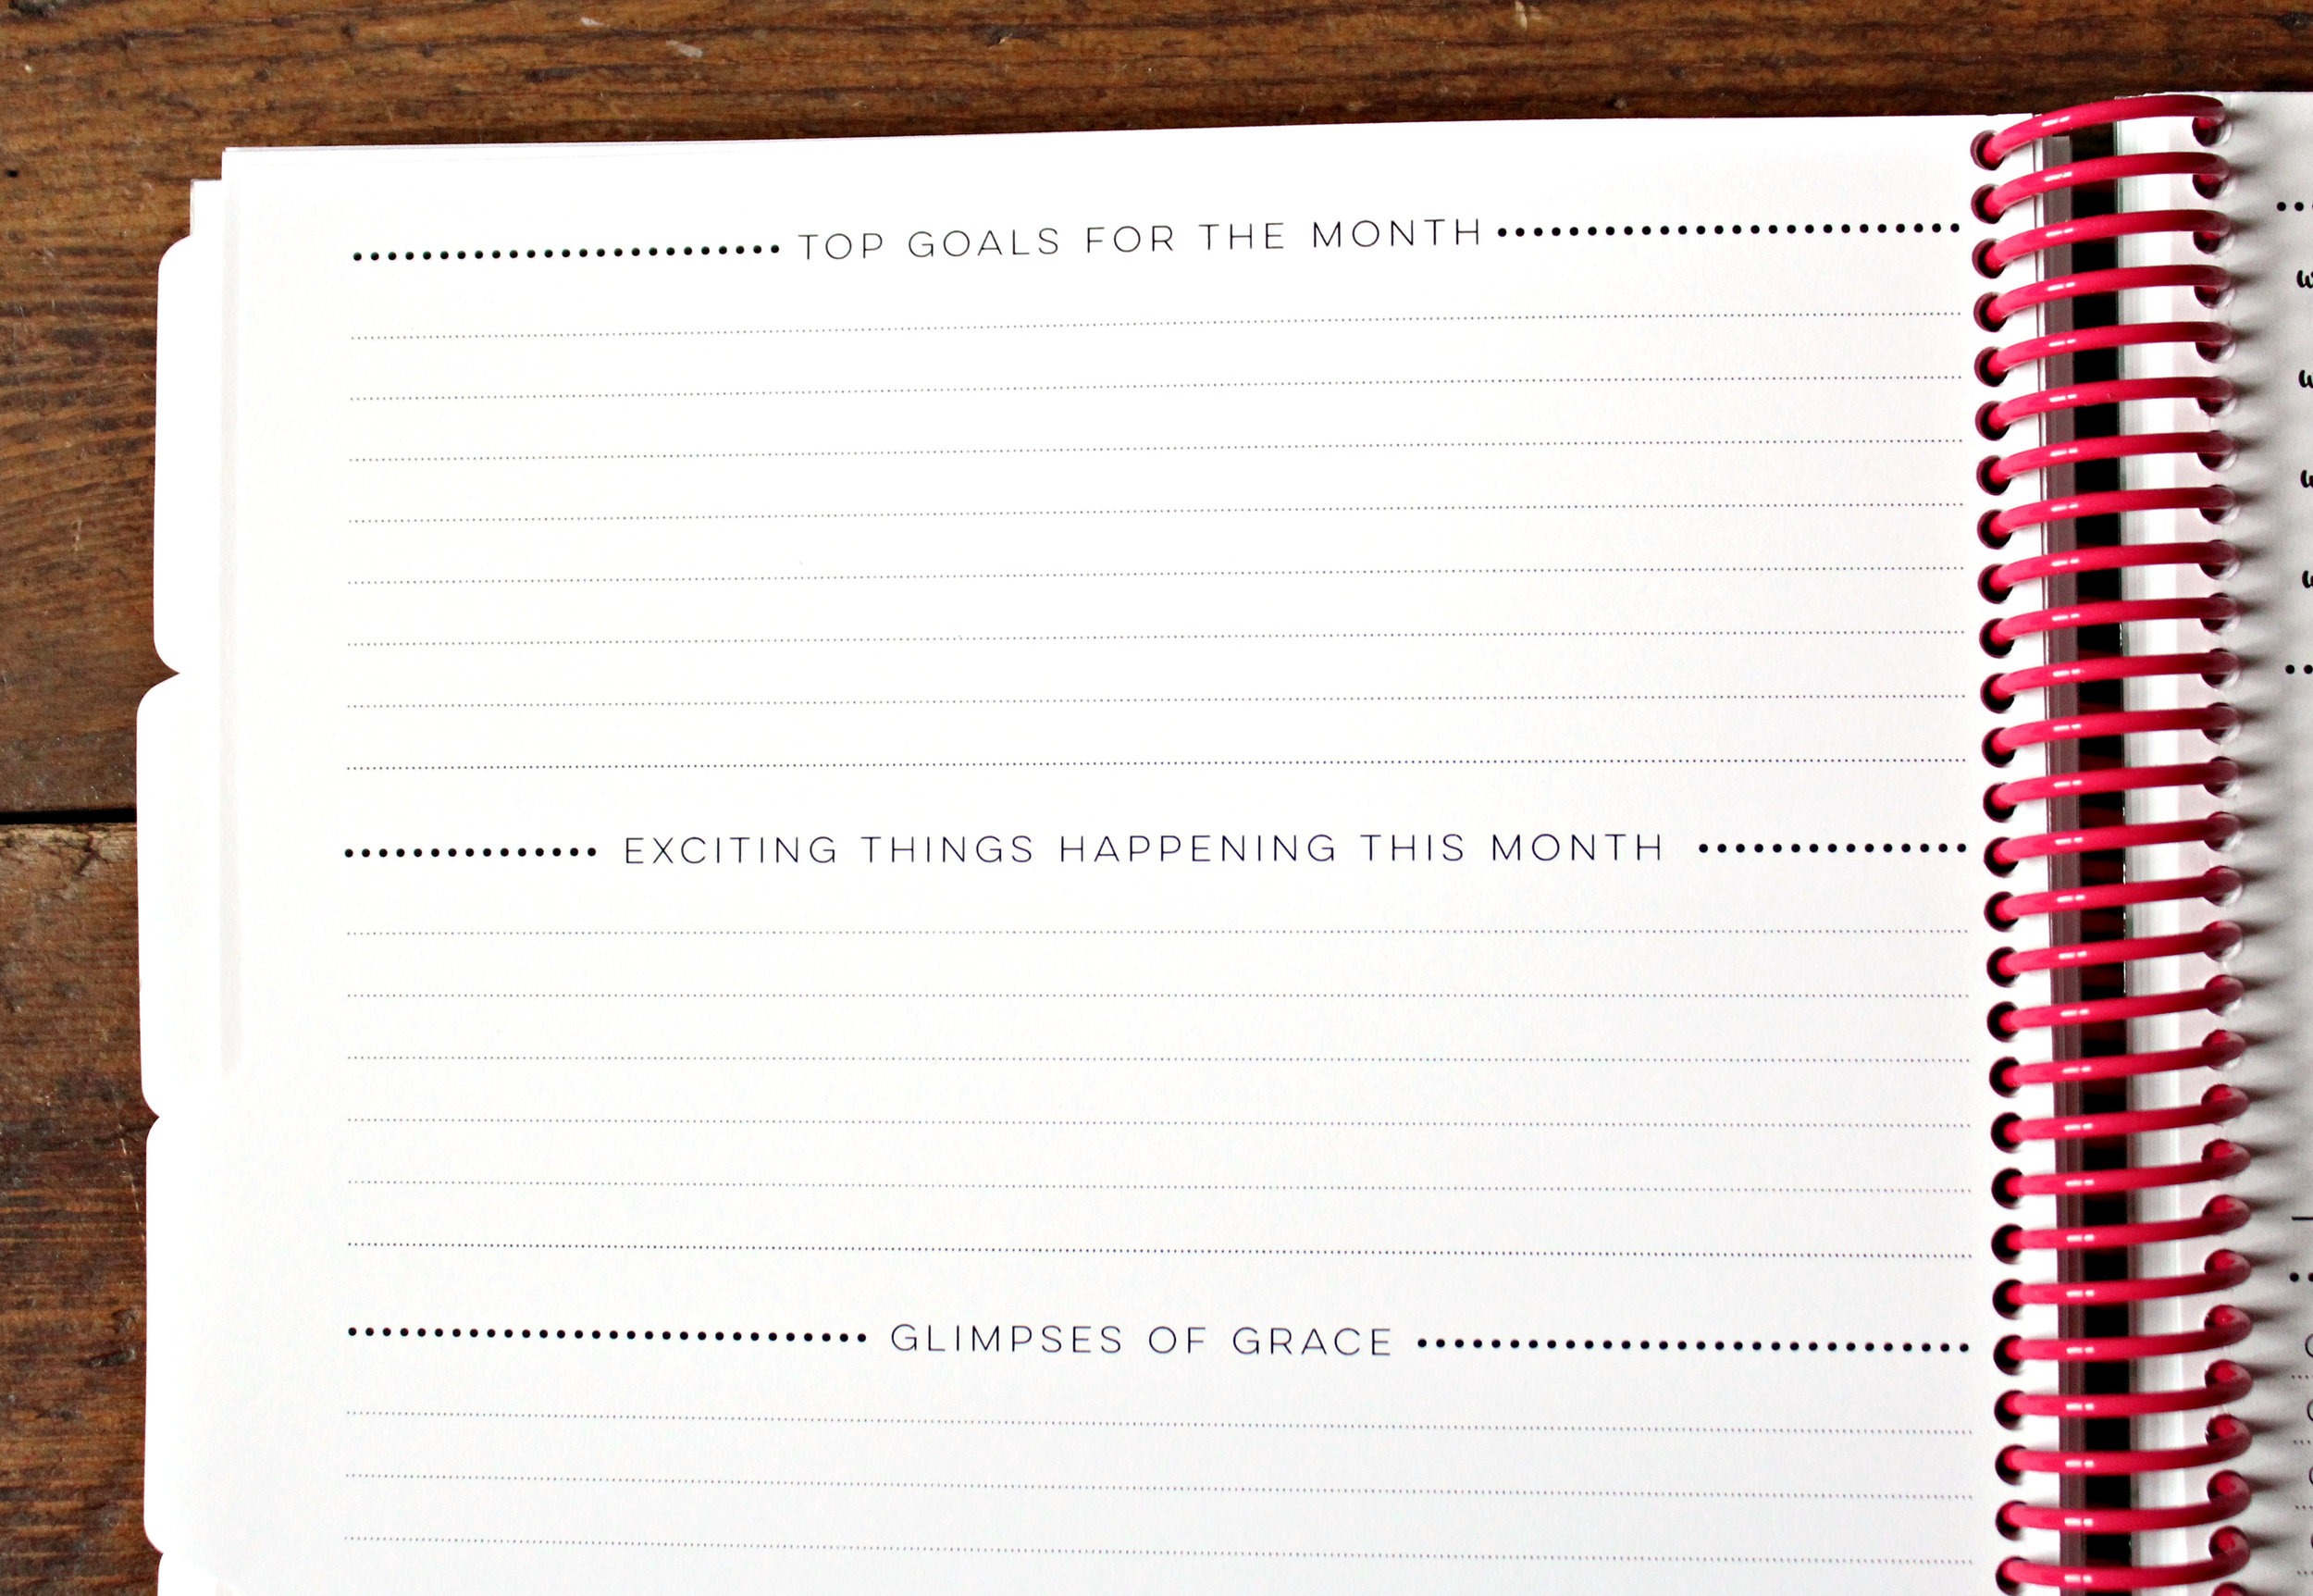 TOP GOALS FOR THE MONTH
EXCITING THINGS HAPPENING THIS MONTH
GLIMPSES OF GRACE